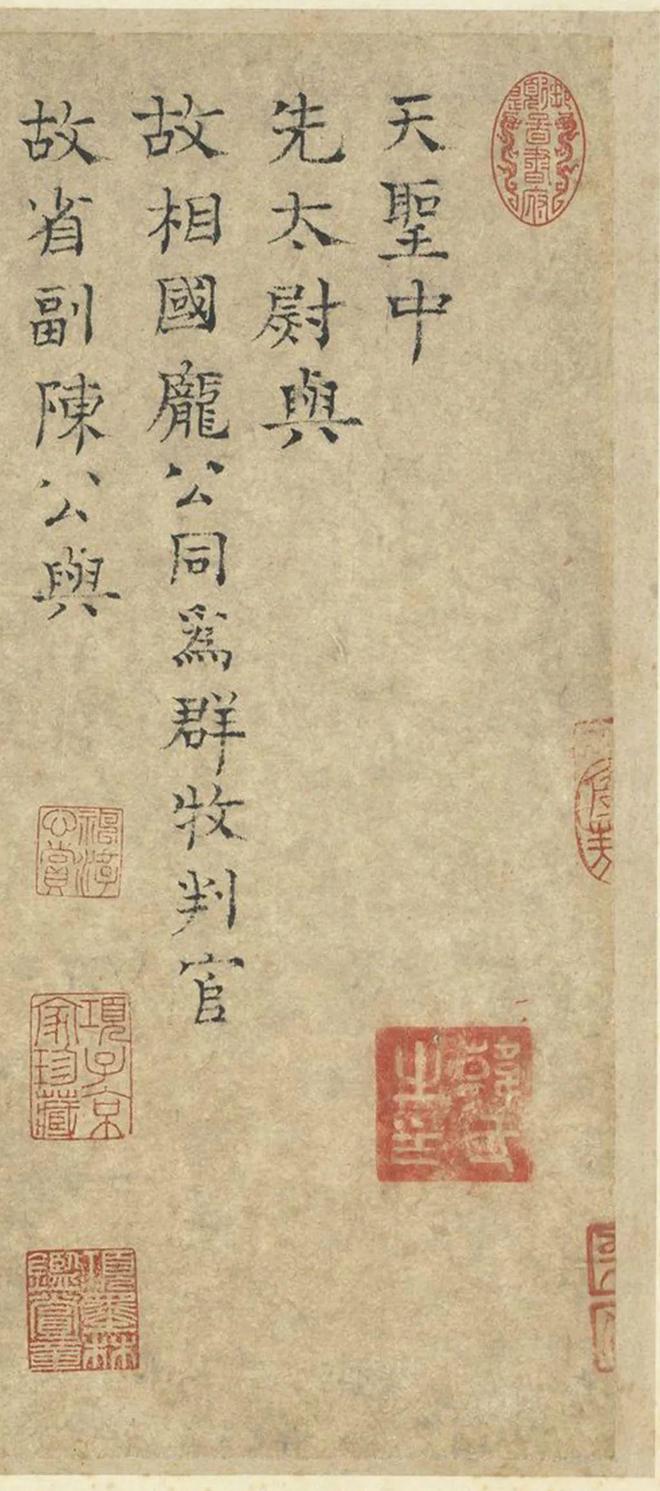 天聖中
先太尉與
故相國龐公同爲群牧判官
故省副陳公與
項子京家珍藏
項墨林鑑賞章